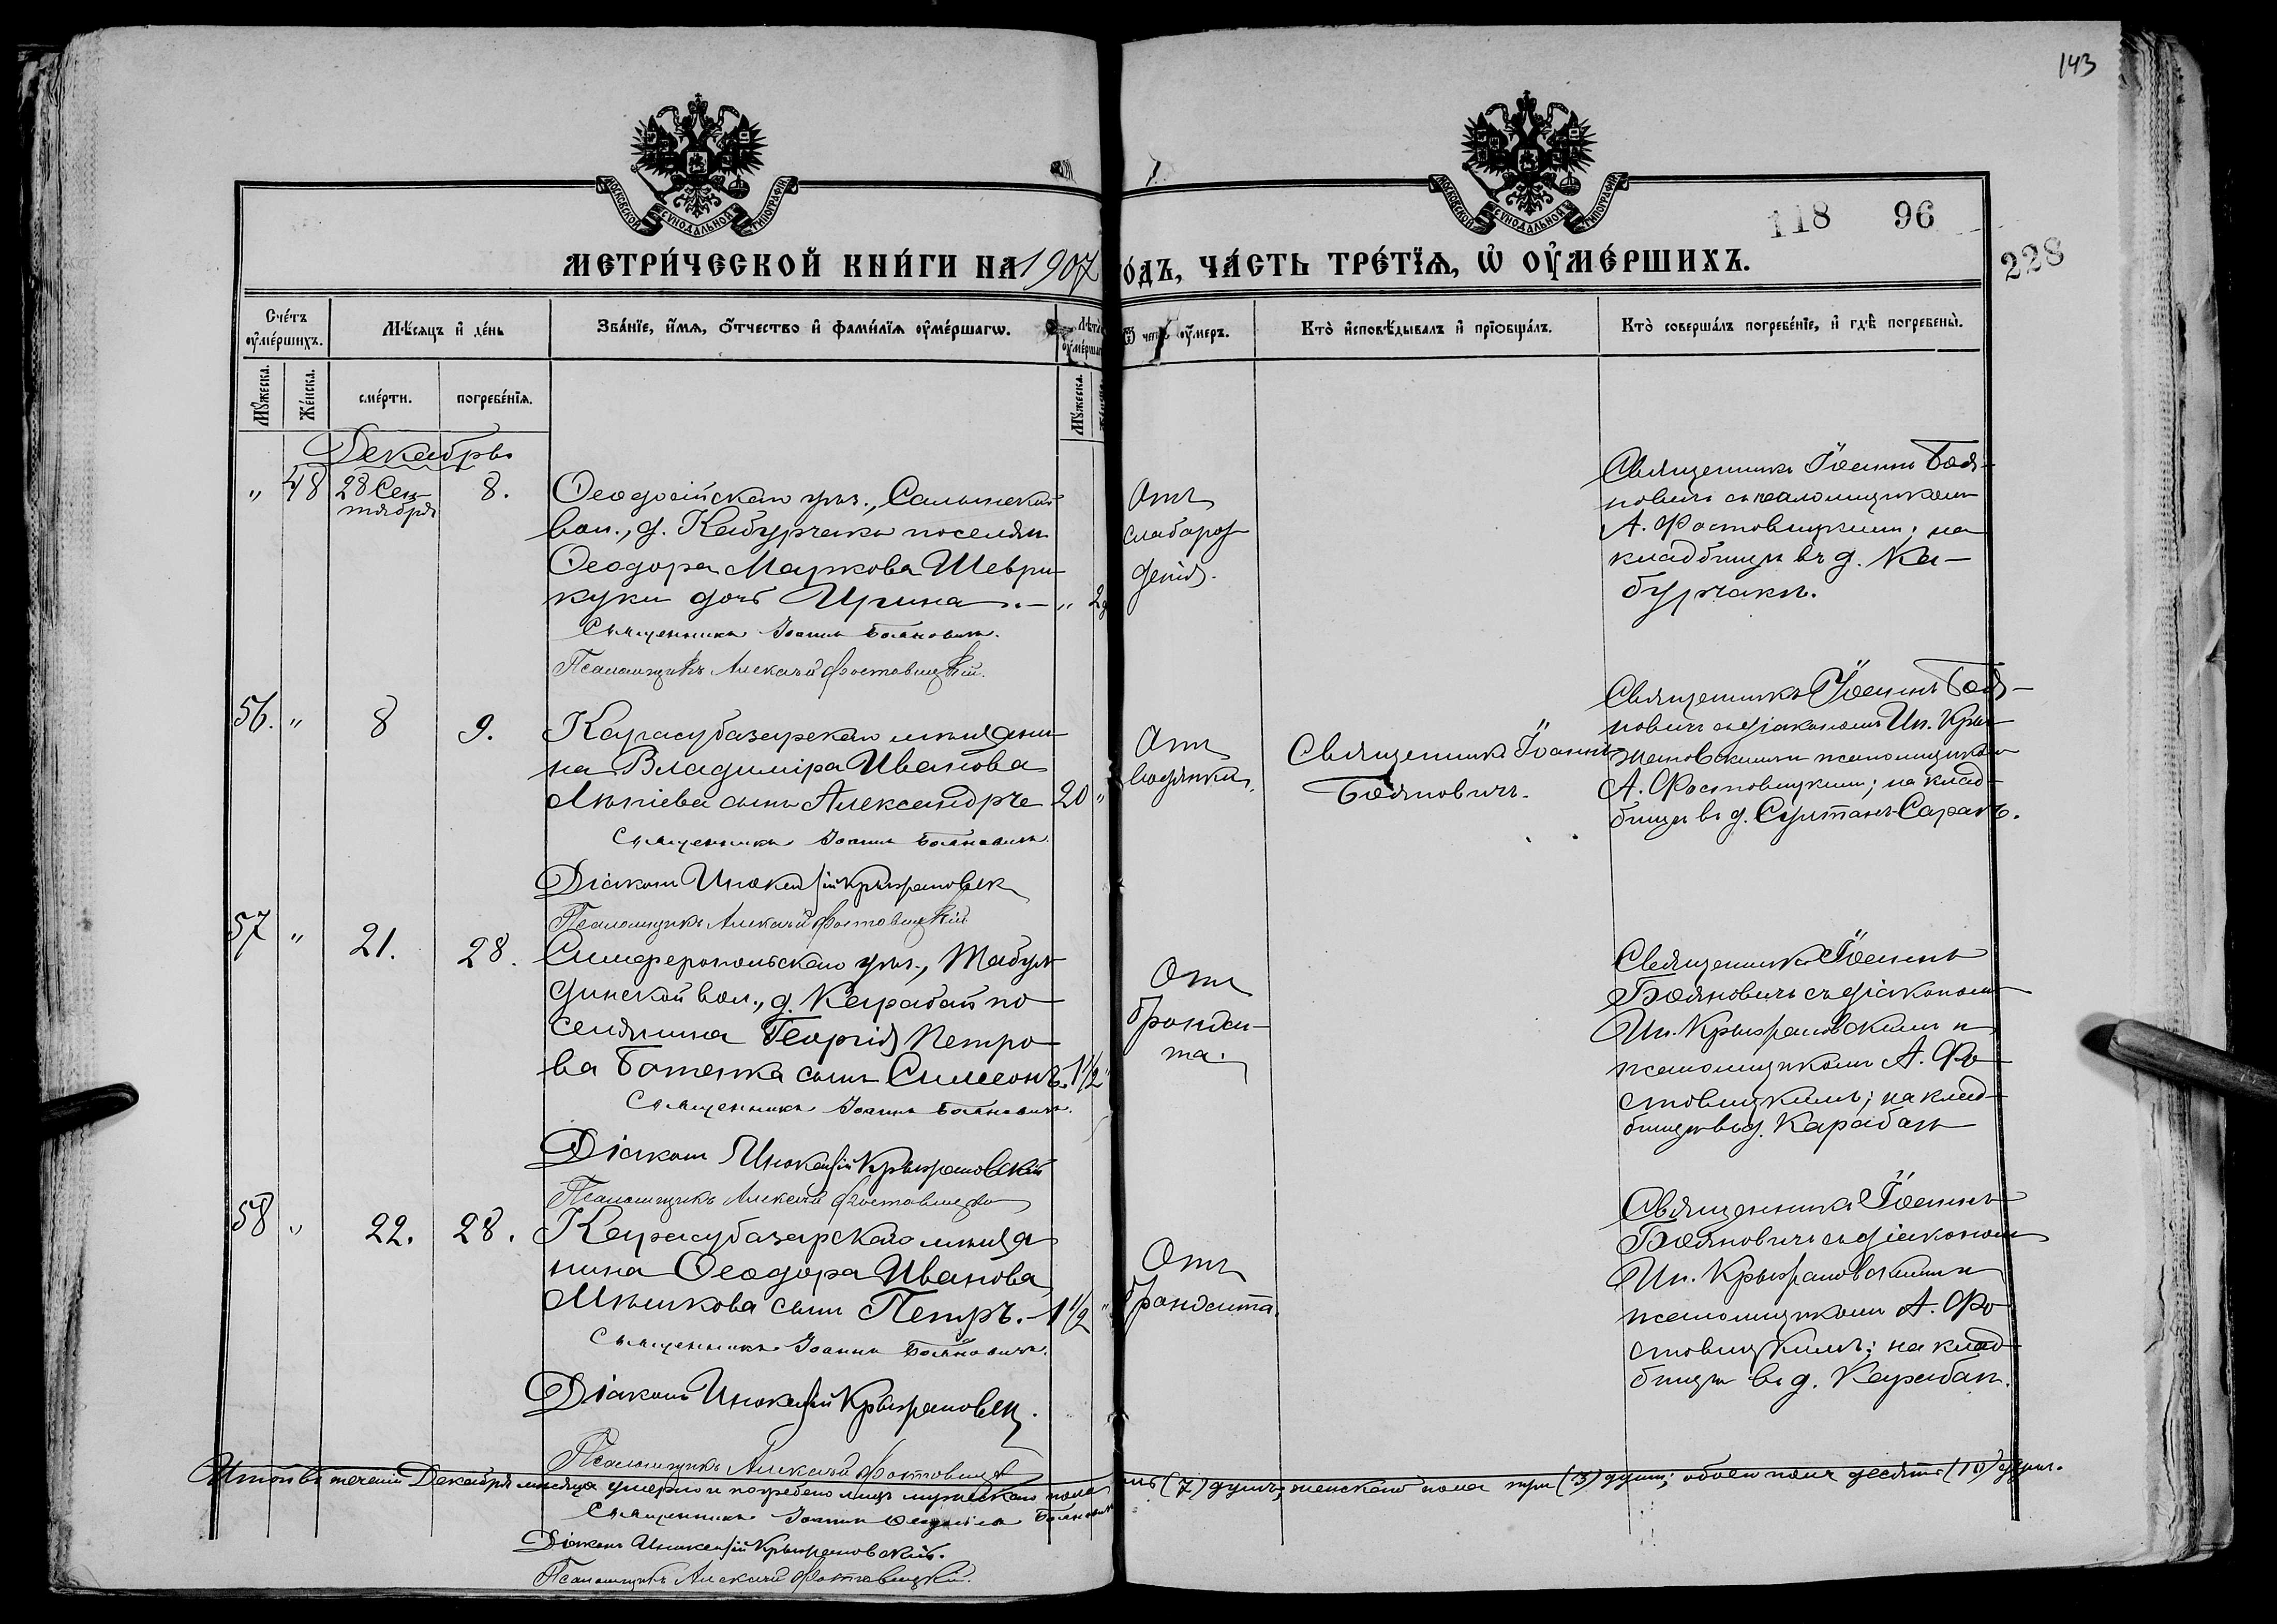 143
МОСКОВСКОЙ СУНОДАЛЬНОЙ ТИПОГРАФІИ
МОСКОВСКОЙ СУНОДАЛЬНОЙ ТИПОГРАФІИ
118 96
228
МЕТРИ́ЧЕСКОЙ КНИ́ГИ НА 1907 ГО́ДЪ, ЧА́СТЬ ТРЕ́ТЇѦ, Ѡ҆ ОУ҆МЕ́РШИХЪ.
Сче́тъ оу҆ме́ршихъ.
Мѣ́сѧцъ и҆ де́нь
Зва́нїе, и҆́мѧ, ѻ҆́тчество и҆ фами́лїѧ оу҆ме́ршагѡ.
Лѣ́та оу҆ме́ршагѡ
Ѿ чегѡ̀ оу҆́меръ.
Кто̀ и҆сповѣ́дывалъ и҆ прїѡбща́лъ.
Кто̀ соверша́лъ погребе́нїе, и҆ гдѣ̀ погребены̀.
Мꙋ́жеска.
Же́нска.
сме́рти.
погребе́нїѧ.
Мꙋ́жеска.
Декабрь
" 48 28 Сен-
тября
8.
Ѳеодосійскаго уѣз., Салынской
вол., д. Кабурчакъ поселян.
Ѳеодора Маркова Шеври-
куки дочь Ирина. — "
Священникъ Іоаннъ Бояновичъ.
Псаломщикъ Алексѣй Фостовицкій.
Отъ
слаборож-
денія.
Священникъ Іоаннъ Боя-
новичъ съ псаломщикомъ
А. Фостовицкимъ; на
кладбищѣ въ д. Ка-
бурчакъ.
56. " 8 9.
Карасубазарскаго мѣщани-
на Владиміра Иванова
сынъ Александръ 20 "
Священникъ Іоаннъ Бояновичъ.
Діаконъ Инокентій Крыжановск
Псаломщикъ Алексѣй Фостовицкій
Отъ
водянки.
Священникъ Іоаннъ
Бояновичъ.
Священникъ Іоаннъ Боя-
новичъ съ діакономъ Ин. Кры-
жановскимъ и псаломщикомъ
А. Фостовицкимъ; на клад-
бищѣ въ д. Султанъ-Сараѣ.
57 " 21. 28.
Симферопольскаго уѣз., Табул-
динской вол., д. Карабай по-
селянина Георгія Петро-
ва Ботенка сынъ Симеонъ. 1½ "
Священникъ Іоаннъ Бояновичъ.
Діаконъ Инокентій Крыжановскій
Псаломщикъ Алексѣй Фостовицкій
Отъ
бронхи-
та.
Священникъ Іоаннъ
Бояновичъ съ діакономъ
Ин. Крыжановскимъ и
псаломщикомъ А. Фо-
стовицкимъ; на клад-
бищѣ въ д. Карабаѣ
58 " 22. 28.
Карасубазарскаго мѣща-
нина Ѳеодора Иванова
Мѣшкова сынъ Петръ. — 1½ "
Священникъ Іоаннъ Бояновичъ.
Діаконъ Инокентій Крыжановск.
Псаломщикъ Алексѣй Фостовицк
Отъ
бронхита.
Священникъ Іоаннъ
Бояновичъ съ діакономъ
Ин. Крыжановскимъ и
псаломщикомъ А. Фо-
стовицкимъ; на клад-
бищѣ въ д. Карабаѣ.
Итого въ теченіи Декабря мѣсяца умерло и погребено лицъ мужескаго пола (7) душъ, женскаго пола три (3) души; обоего пола десять (10) душъ.
Священникъ Іоаннъ Бояновичъ
Діаконъ Инокентій Крыжановскій.
Псаломщикъ Алексѣй Фостовицкій.